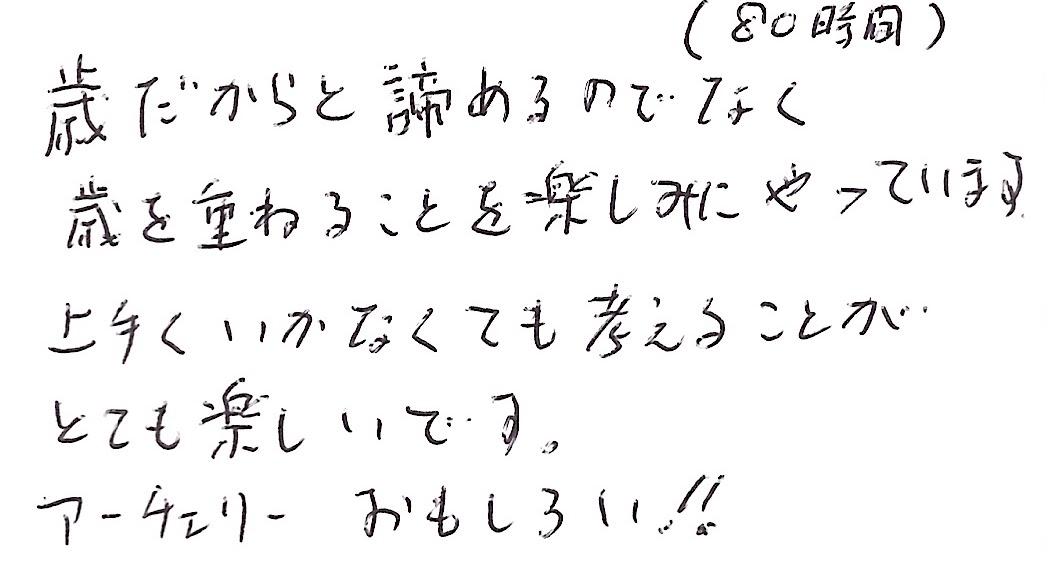 (80時間)
歳だからと諦めるのでなく
歳を重ねることを楽しみにやっています
上手くいかなくても考えることが
とても楽しいです。
アーチェリー おもしろい!!